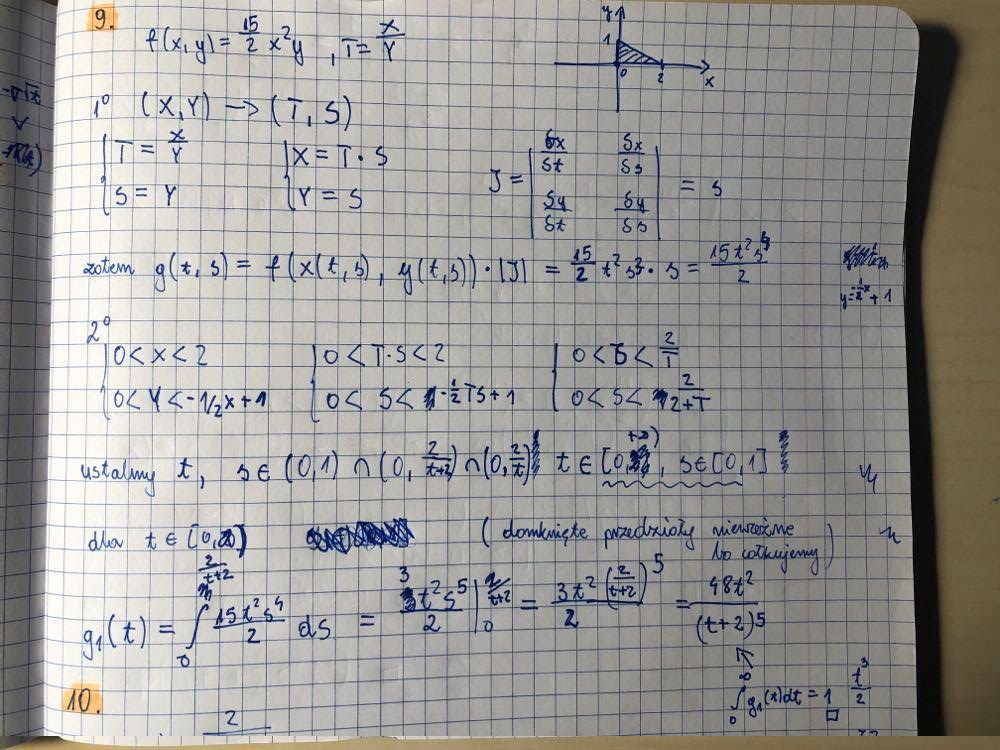 9.
f(x,y) = 15/2 x²y , T = X/Y
y
1
0 2 x
1° (X,Y) → (T,S)
{ T = X/Y { X = T·S
{ S = Y { Y = S
J = | δx/δt δx/δs ; δy/δt δy/δs | = s
zatem g(t,s) = f(x(t,s), y(t,s))·|J| = 15/2 t²s³·s = 15t²s⁴/2
y=-1/2x+1
2°
{ 0<X<2 { 0<T·S<2 { 0<S<2/T
{ 0<Y<-1/2x+1 { 0<S<-1/2TS+1 { 0<S<2/2+T
ustalmy t, s∈(0,1) ∩ (0, 2/t+2) ∩ (0, 2/t) t∈[0,+∞), s∈[0,1]
dla t∈[0,∞) (domknięte przedziały nieważne
bo całkujemy)
g₁(t) = ∫₀^(2/t+2) 15t²s⁴/2 ds = 3t²s⁵/2 |₀^(2/t+2) = 3t²(2/t+2)⁵/2 = 48t²/(t+2)⁵
↖
∫₀^∞ g₁(t)dt = 1 □
t³/2
10.
2